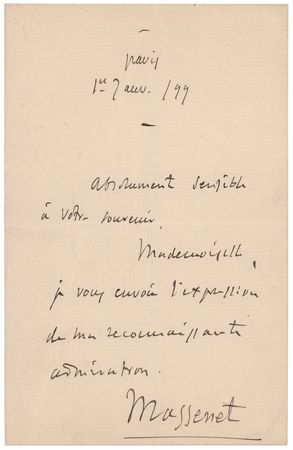 Paris
1er Janv. /99
Absolument sensible
à votre souvenir,
Mademoiselle,
je vous envoie l'expression
de ma reconnaissante
admiration.
Massenet